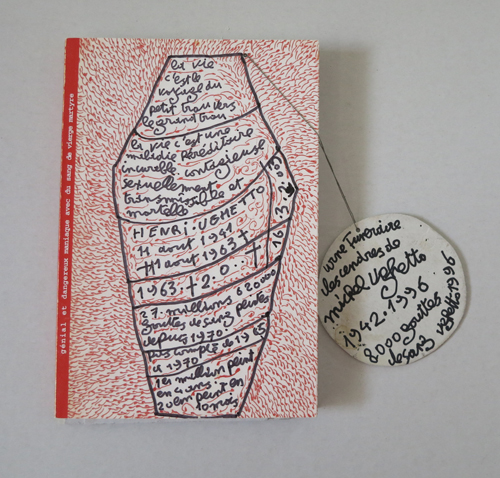 génial et dangereux maniaque avec du sang de vierge martyre
la vie
c'est le
voyage du
petit trou vers
le grand trou
la vie c'est une
maladie héréditaire
incurable contagieuse
sexuellement
transmissible et
mortelle
HENRI. UGHETTO
11 aout 1941
11 aout 1963 †
1963. † 2.0...
27. millions 620000
gouttes de sang peintes
depuis 1970.
pas compté de 1965
à 1970
1er million peint
en 4 ans
20em peint en
10 mois
urne funéraire
les cendres de
michel Ughetto
1942.1996.
8000 gouttes
de sang
Ughetto 1996